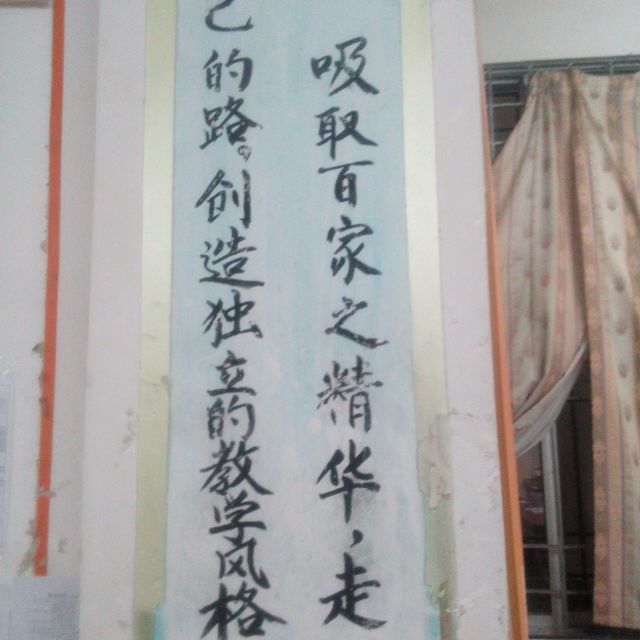 吸取百家之精华，走
己的路。创造独立的教学风格